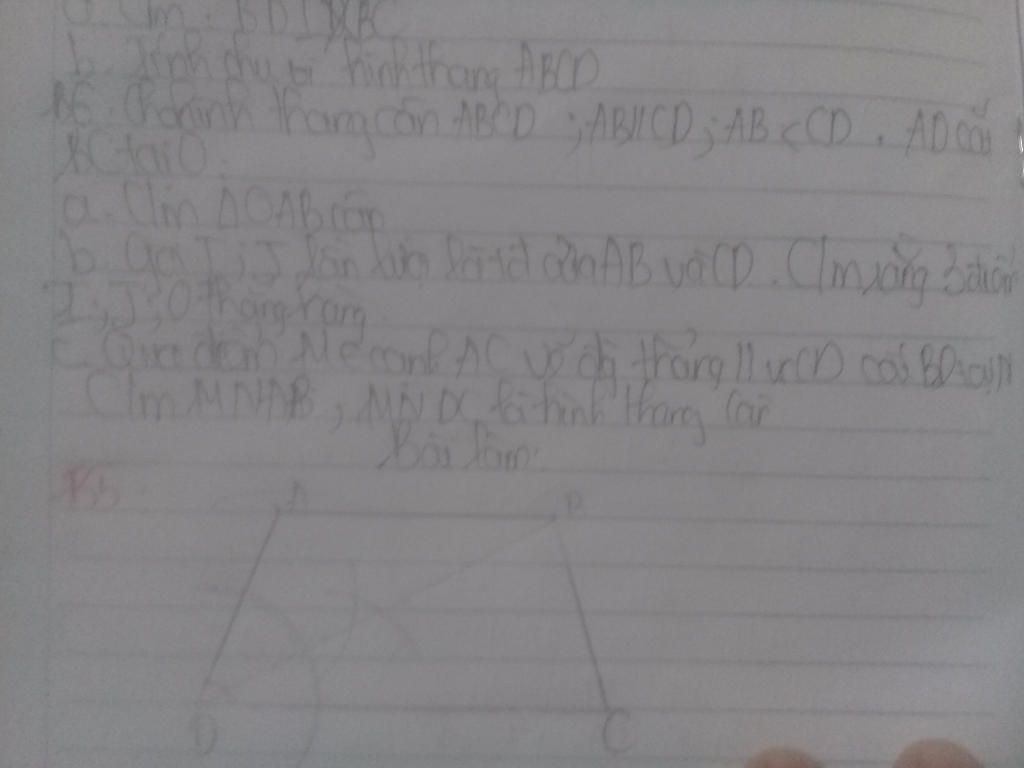 a. C/m. BD ⊥ BC
b. Tính chu vi hình thang ABCD
B6. Cho hình thang cân ABCD ; AB//CD ; AB < CD . AD cắt
BC tại O.
a. C/m ΔOAB cân
b. Gọi I ; J lần lượt là tđ của AB và CD . C/m rằng 3 điểm
I ; J ; O thẳng hàng.
c. Qua điểm M ∈ cạnh AC vẽ đg thẳng // vs CD cắt BD tại N
C/m MNAB ; MNDC là hình thang cân
Bài làm:
B5
A B
D C